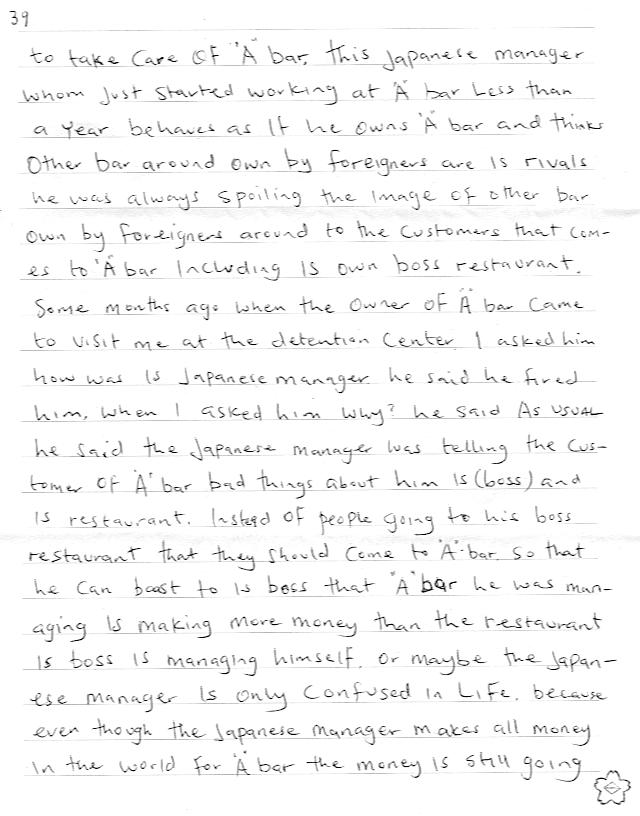 39
to take care of "A" bar, this Japanese manager
whom just started working at "A" bar Less than
a year behaves as If he owns "A" bar and thinks
Other bar around own by foreigners are Is rivals
he was always spoiling the Image of other bar
own by foreigners around to the customers that com-
es to "A" bar Including Is own boss restaurant.
Some months ago when the owner of "A" bar came
to visit me at the detention center I asked him
how was Is Japanese manager he said he fired
him, when I asked him why? he said As USUAL
he said the Japanese manager was telling the cus-
tomer of "A" bar bad things about him Is (boss) and
Is restaurant. Instead of people going to his boss
restaurant that they should come to "A" bar. So that
he can boast to Is boss that "A" bar he was man-
aging Is making more money than the restaurant
Is boss Is managing himself. Or maybe the Japan-
ese manager Is only confused in Life. because
even though the Japanese manager makes all money
In the world for "A" bar the money Is still going